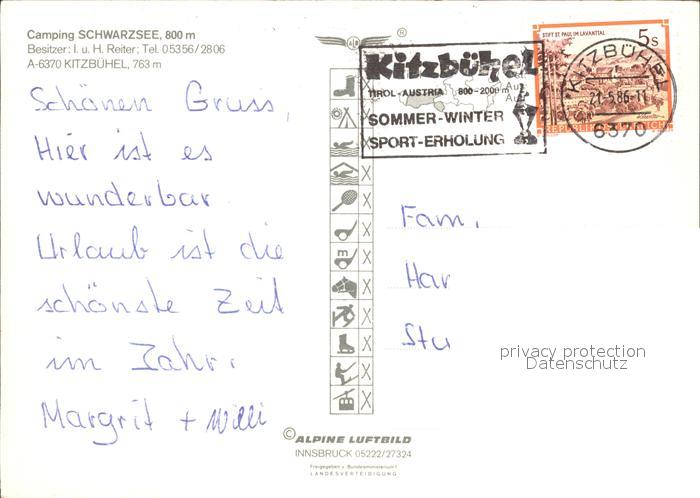 Camping SCHWARZSEE, 800 m
Besitzer: I. u. H. Reiter; Tel. 05356/2806
A-6370 KITZBÜHEL, 763 m
Schönen Gruss,
Hier ist es
wunderbar
Urlaub ist die
schönste Zeit
im Jahr.
Margrit + Willi
®
Kitzbühel
TIROL-AUSTRIA 800-2000 m
SOMMER-WINTER
SPORT-ERHOLUNG
STIFT ST. PAUL IM LAVANTTAL
5s
REPUBLIK ÖSTERREICH
KITZBÜHEL
21-5.86-11
6370
m
Fam.
Har
Stu
privacy protection
Datenschutz
© ALPINE LUFTBILD
INNSBRUCK 05222/27324
Freigegeben v. Bundesministerium f.
LANDESVERTEIDIGUNG